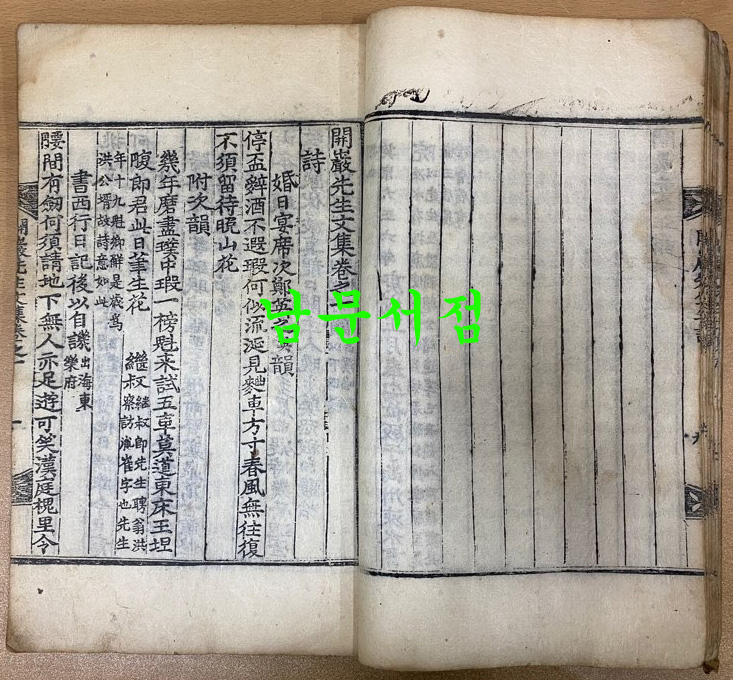 開巖先生文集卷之
詩
婚日宴席次鄭
韻
停盃辭酒不遐瑕何似流涎見麯車方寸春風無往復
不須留待晩山花
附次韻
幾年磨盡璞中瑕一榜魁来試五車莫道東床王坦
腹郎君此日筆生花
繼叔
繼叔即先生聘翁洪
叔察訪崔字也先生
年十九魁鄕解是歲爲
洪公壻故詩意如此
書西行日記後以自譏
出海東
樂府
腰間有劒何須請地下無人亦足遊可笑漢庭槐里令
開巖先生文集卷之一
남문서점